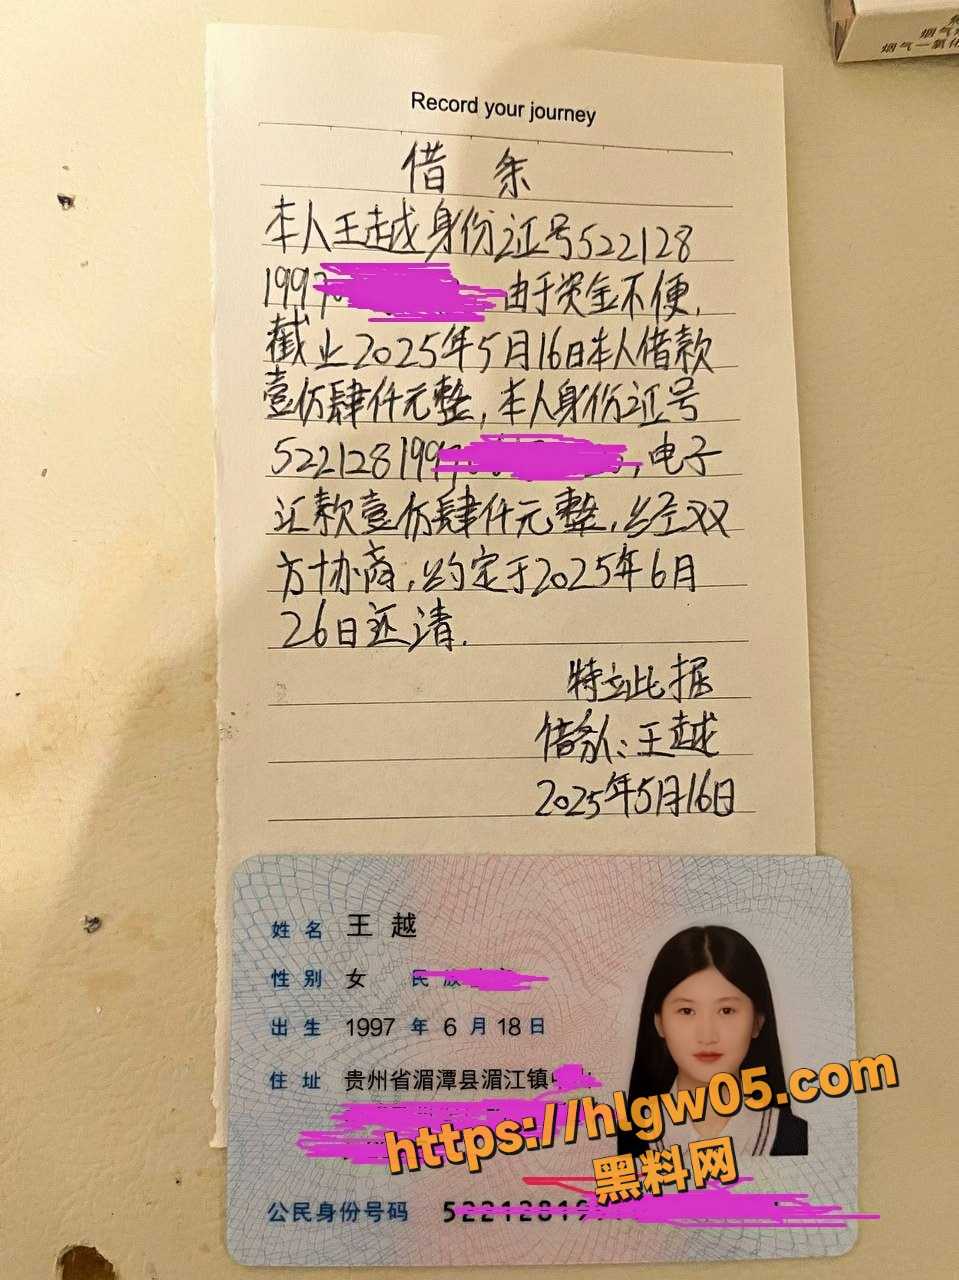 烟气
烟气一氧化
Record your journey
借条
本人王越身份证号522128
1997 由于资金不便,
截止2025年5月16日本人借款
壹仿肆仟元整,本人身份证号
522128199 ,电子
汇款壹仿肆仟元整,经双
方协商,约定于2025年6月
26日还清.
特立此据
借款人:王越
2025年5月16日
姓名 王越
性别 女 民族
出生 1997 年 6 月 18 日
住址 贵州省湄潭县湄江镇
https://hlgw05.com
黑料网
公民身份号码 52212819